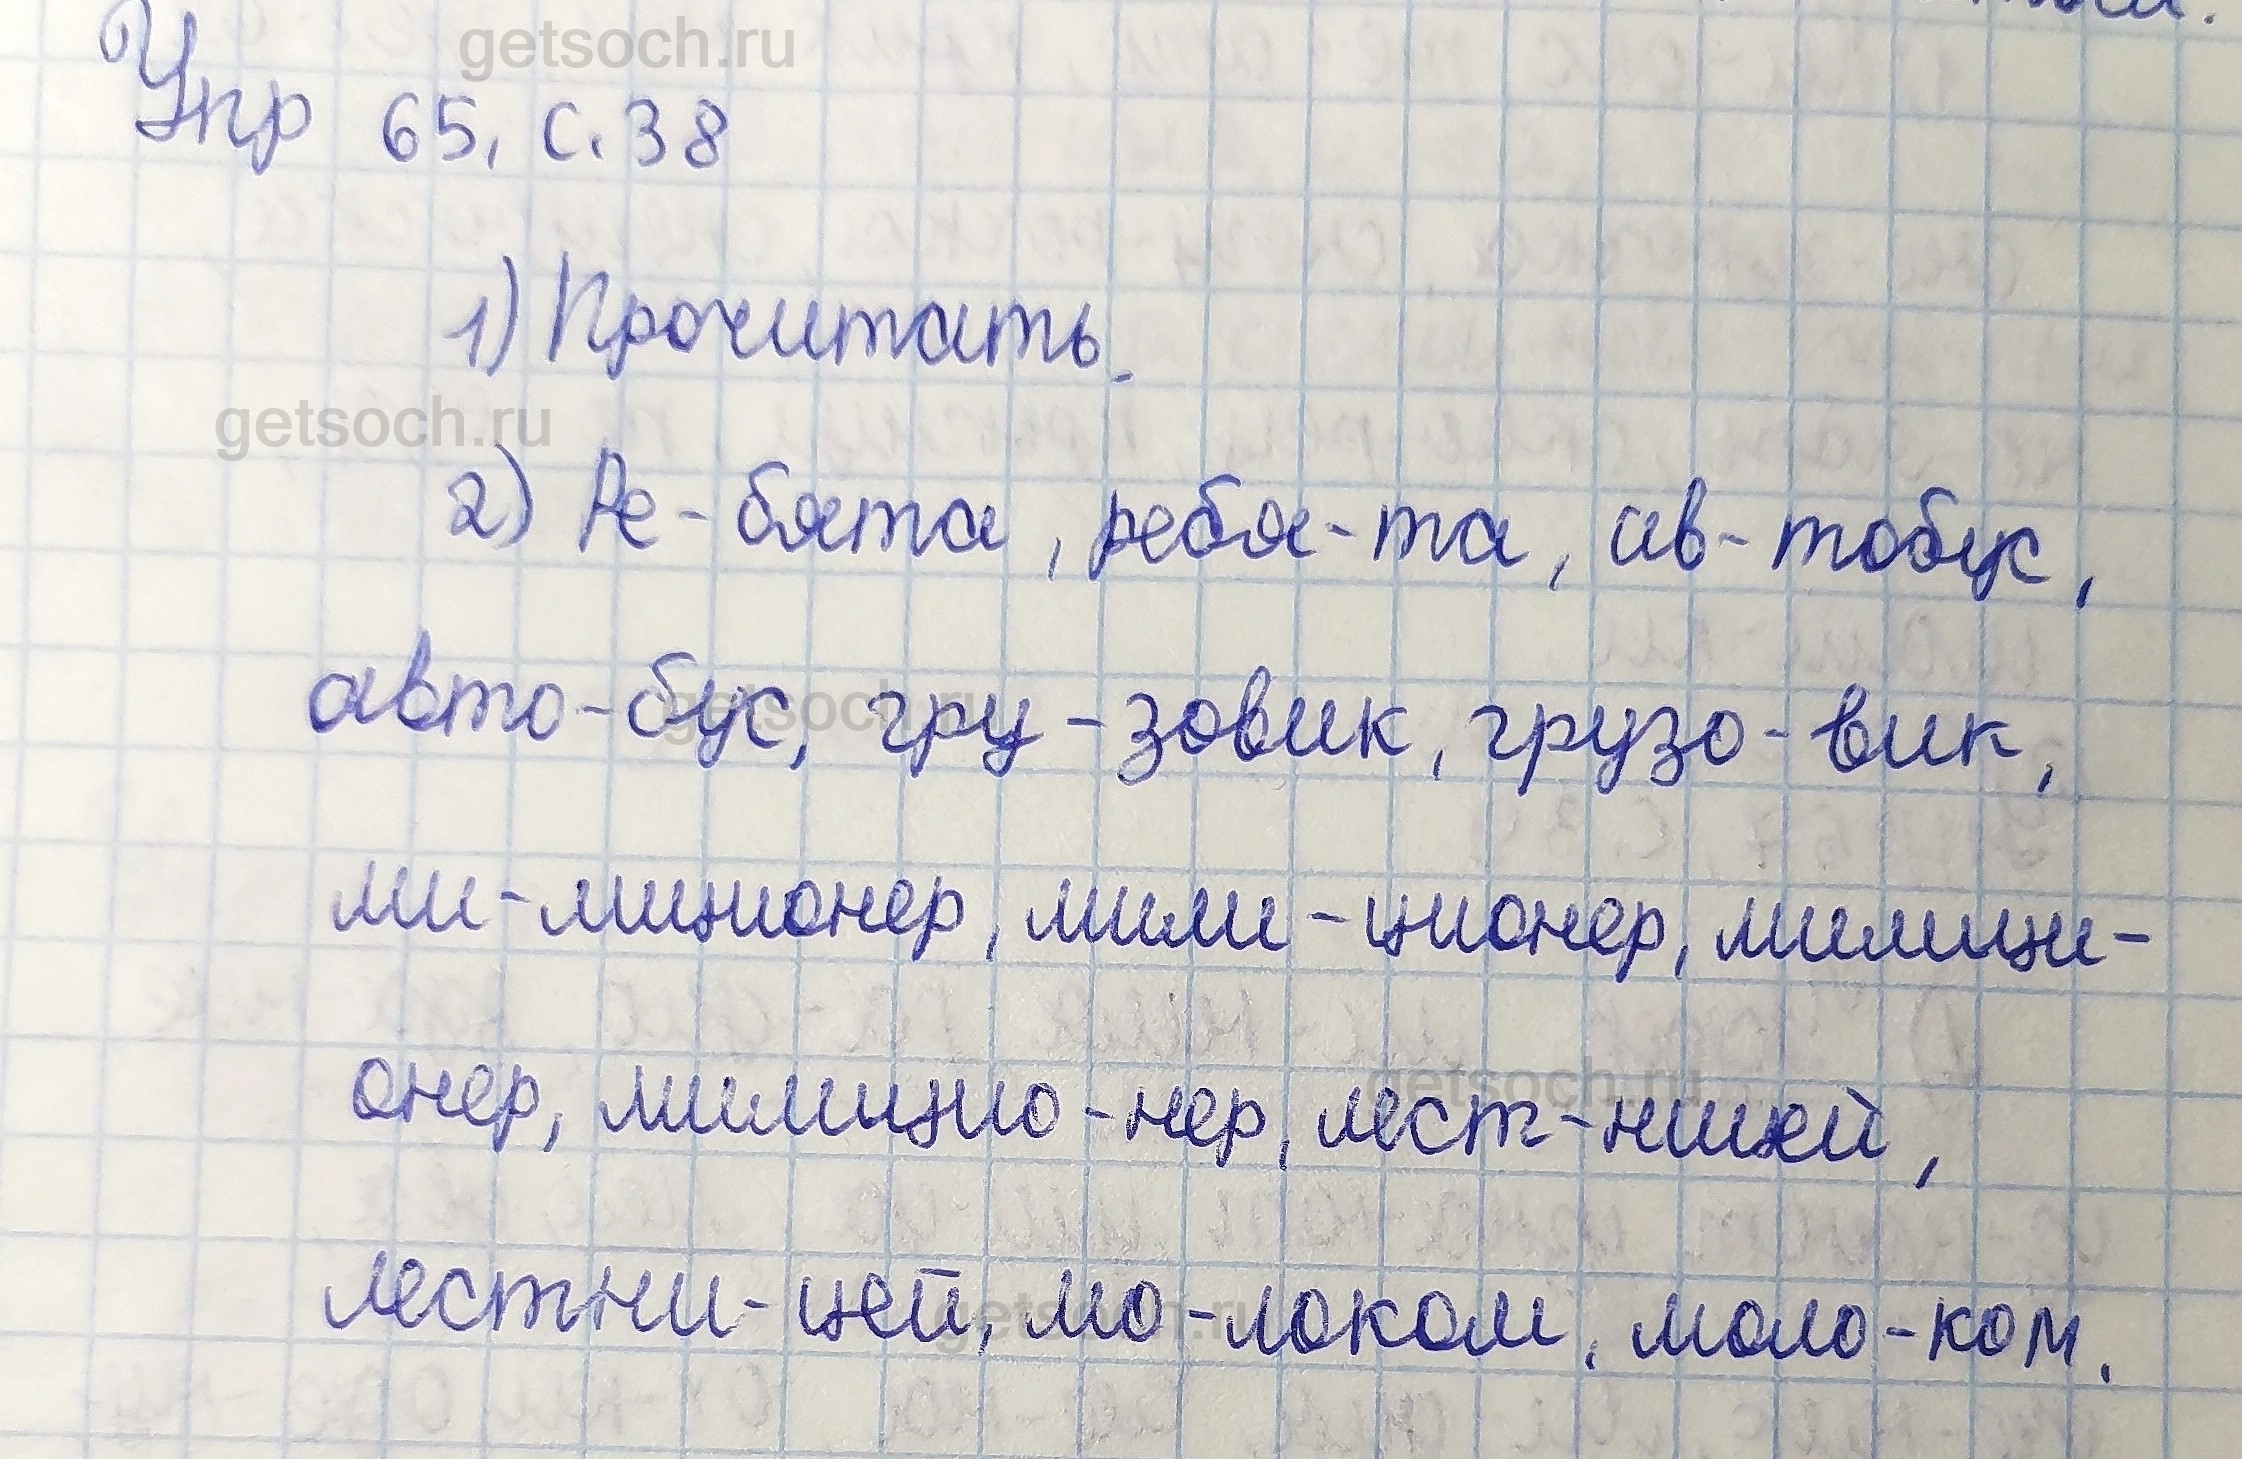 getsoch.ru
Упр 65, с. 38
1) Прочитать.
getsoch.ru
2) Ре-бята, ребя-та, ав-тобус,
авто-бус, гру-зовик, грузо-вик,
getsoch.ru
ми-лиционер, мили-ционер, милици-
онер, милицио-нер, лест-ницей,
getsoch.ru
лестни-цей, мо-локом, моло-ком.
getsoch.ru